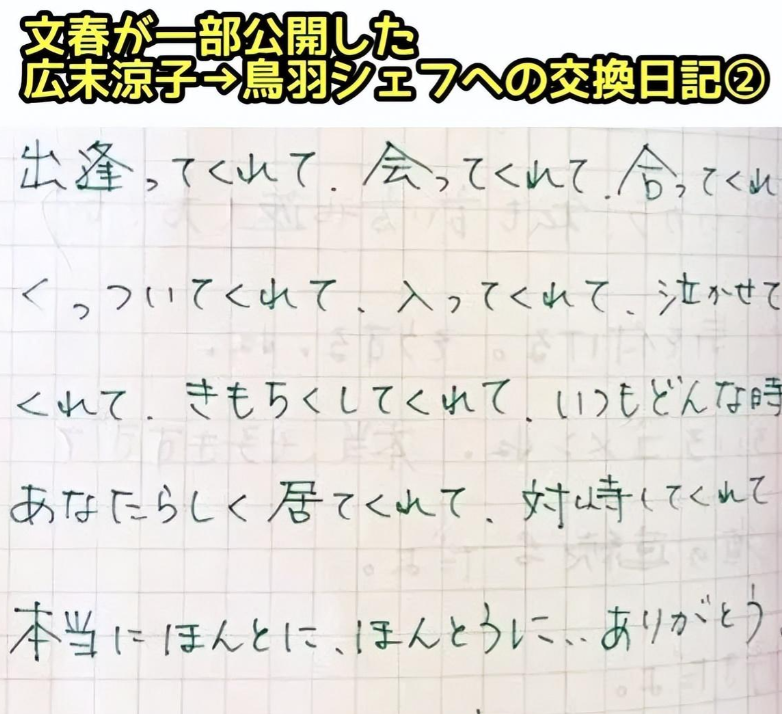 文春が一部公開した
広末涼子→鳥羽シェフへの交換日記②
出逢ってくれて、会ってくれて、合ってくれ
くっついてくれて、入ってくれて、泣かせて
くれて、きもちくしてくれて、いつもどんな時
あなたらしく居てくれて、対峙してくれて
本当にほんとに、ほんとうに、、ありがとう